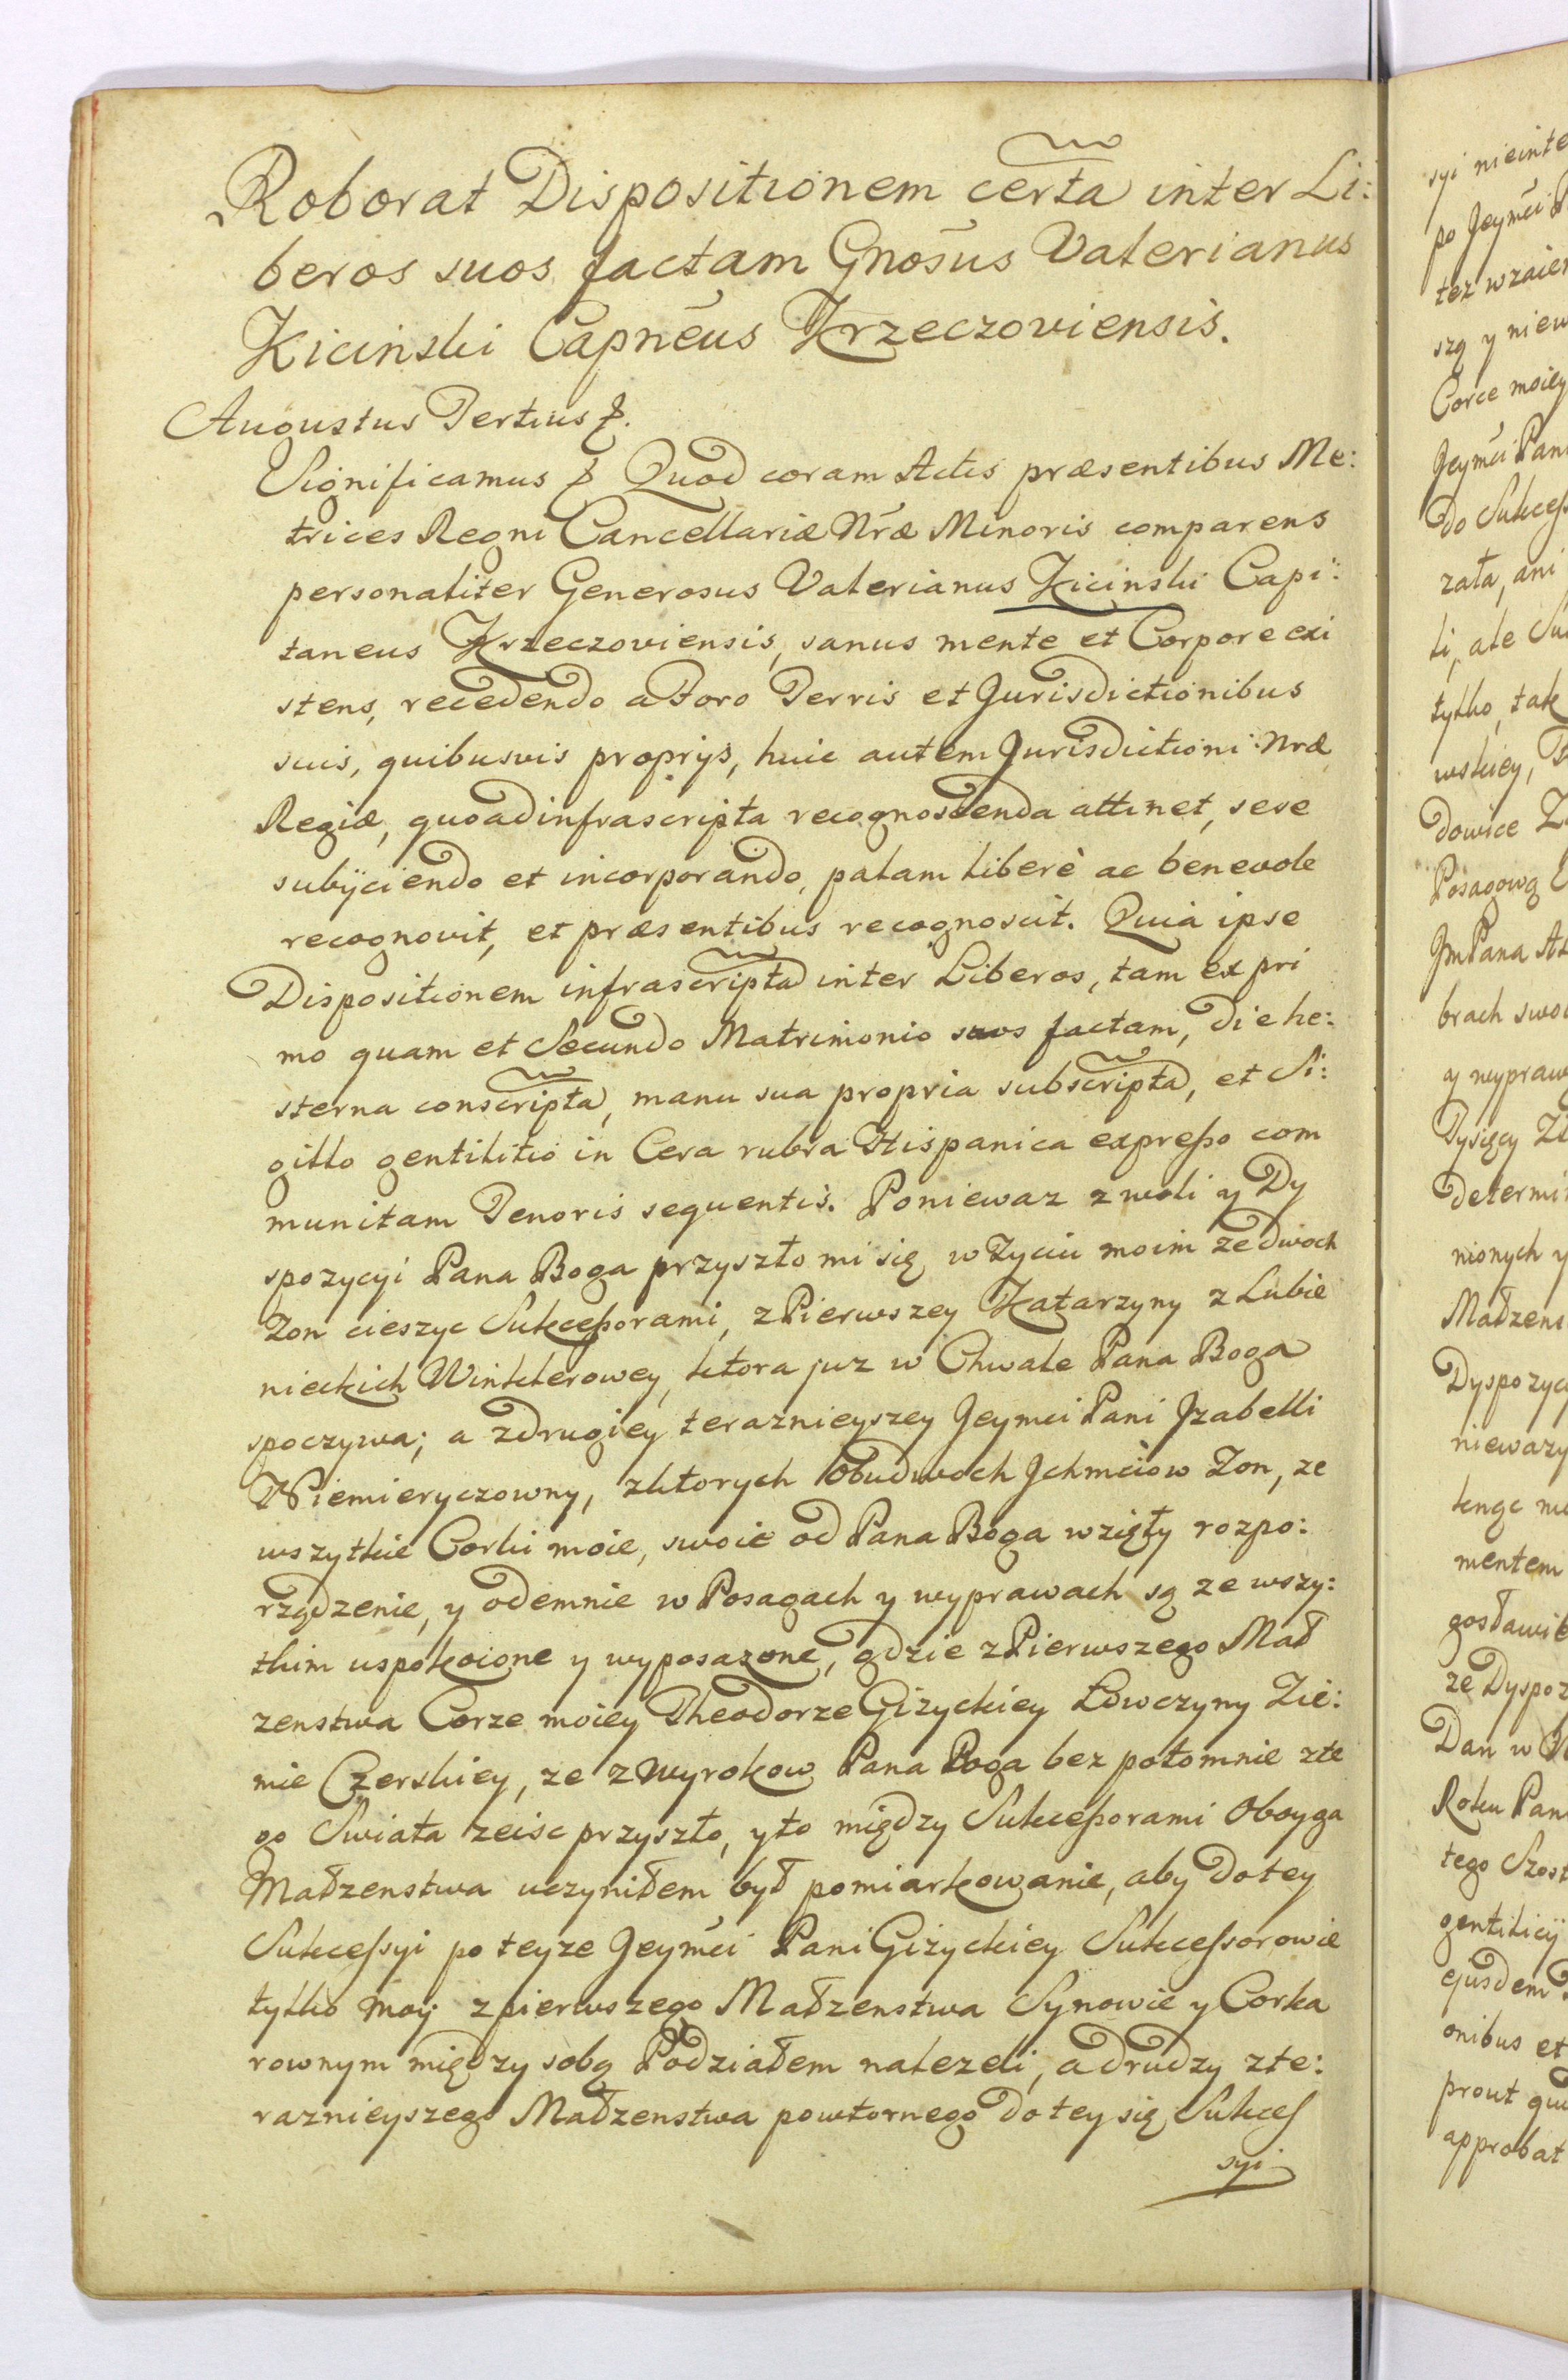 Roborat Dispositionem certa inter Li:
beros suos factam Gnosus Valerianus
Kicinski Capneus Krzeczoviensis.
Augustus Tertius &.
Significamus & Quod coram Actis præsentibus Me:
trices Regni Cancellariæ Nræ Minoris comparens
personaliter Generosus Valerianus Kicinski Capi:
taneus Krzeczoviensis, sanus mente et Corpore exi
stens, recedendo a Foro Terris et Jurisdictionibus
suis, quibusvis proprijs, huic autem Jurisdictioni Nræ
Regiæ, quoad infrascripta recognoscenda attinet, sese
subijciendo et incorporando, palam liberè ac benevole
recognovit, et præsentibus recognoscit. Quia ipse
Dispositionem infrascripta inter Liberos, tam ex pri
mo quam et Secundo Matrimonio suos factam, die he:
sterna conscripta, manu sua propria subscripta, et Si:
gillo gentilitio in Cera rubra Hispanica expreßo com
munitam Tenoris sequentis. Poniewaz z woli y Dy
spozycyi Pana Boga przyszło mi się w Zyciu moim ze dwoch
Zon cieszyc Sukceßorami, z Pierwszey Katarzyny z Lubie
nieckich Winklerowey, ktora juz w Chwale Pana Boga
spoczywa; a z drugiey teraznieyszey Jeymci Pani Jzabelli
Niemieryczowny, z ktorych obudwoch Jchmciow Zon, ze
wszytkie Corki moie, swoie od Pana Boga wzięły rozpo:
rządzenie, y odemnie w Posagach y wyprawach są ze wszy:
tkim uspokoione y wyposazone, gdzie z Pierwszego Mał
zenstwa Corze moiey Theodorze Giżyckiey Łowczyny Zie:
mie Czerskiey, ze z wyrokow Pana Boga bez potomnie z te
go Swiata zeisc przyszło, y to między Sukceßorami Oboyga
Małzenstwa uczyniłem był pomiarkowanie, aby do tey
Sukcessyi po teyze Jeymci Pani Giżyckiey Sukcessorowie
tylko moij z pierwszego Małzenstwa Synowie y Corka
rownym między sobą Podziałem nalezeli, a drudzy z te:
raznieyszego Małzenstwa powtornego do tey się Sukces
syi
syi nieinte
po Jeymci P
tez wzaie
szą y niew
Corce moiey
Jeymci Pani
do Sukces
zała, ani
li, ale Su
tylko, tak
wskiey,
dowice
Posagową
JmPana
brach swo
y wypraw
Tysięcy Zł
determi
nionych y
Małzens
Dyspozyc
niewazy
mentem
gosławie
ze Dyspoz
Dan w
Roku Pan
tego Szost
gentilicij
ejusdem
onibus et
prout qu
approbat